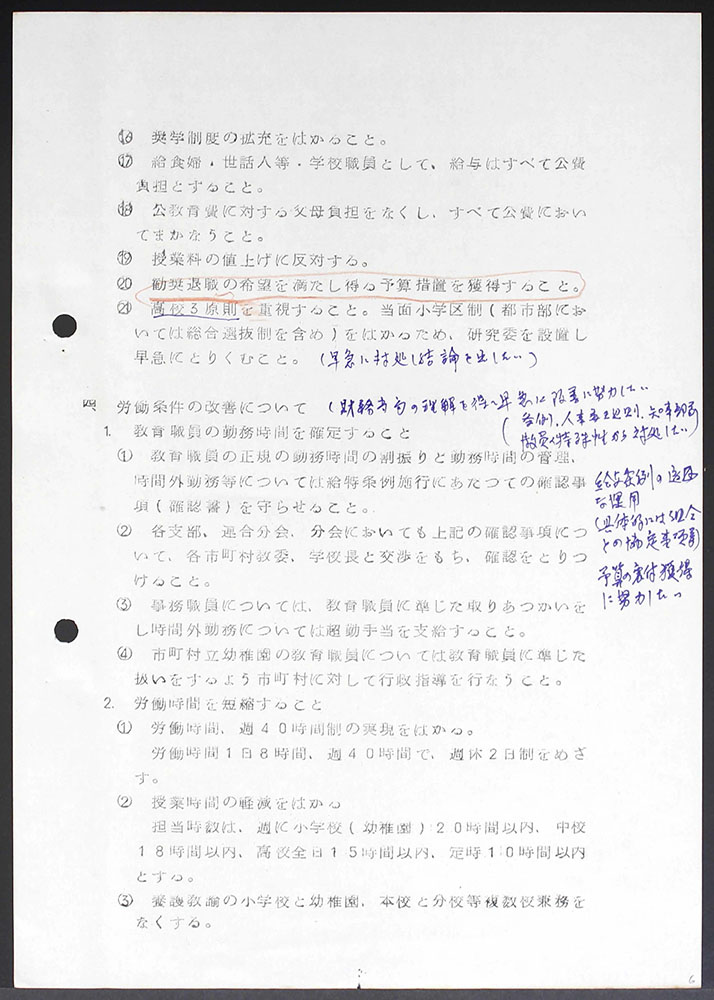 ⑯ 奨学制度の拡充をはかること。
⑰ 給食婦・世話人等・学校職員として、給与はすべて公費
負担とすること。
⑱ 公教育費に対する父母負担をなくし、すべて公費におい
てまかなうこと。
⑲ 授業料の値上げに反対する。
⑳ 勧奨退職の希望を満たし得る予算措置を獲得すること。
㉑ 高校3原則を重視すること。当面小学区制(都市部にお
いては総合選抜制を含め)をはかるため、研究委を設置し
早急にとりくむこと。(早急に対処し結論を出したい)
四 労働条件の改善について(財務当局の理解を得て早急に改善に努力したい
(条例、人事委規則、知事部局
教員特殊性から対処したい)
1. 教育職員の勤務時間を確定すること
① 教育職員の正規の勤務時間の割振りと勤務時間の管理、
時間外勤務等については給特条例施行にあたつての確認事
項(確認書)を守らせること。
給与条例の適正
な運用
(具体的には組合
との協定事項)
予算の裏付獲得
に努力したい
② 各支部、連合分会、分会においても上記の確認事項につ
いて、各市町村教委、学校長と交渉をもち、確認をとりつ
けること。
③ 事務職員については、教育職員に準じた取りあつかいを
し時間外勤務については超勤手当を支給すること。
④ 市町村立幼稚園の教育職員については教育職員に準じた
扱いをするよう市町村に対して行政指導を行なうこと。
2. 労働時間を短縮すること
① 労働時間、週40時間制の実現をはかる。
労働時間1日8時間、週40時間で、週休2日制をめざ
す。
② 授業時間の軽減をはかる
担当時数は、週に小学校(幼稚園)20時間以内、中校
18時間以内、高校全日15時間以内、定時10時間以内
とする。
③ 養護教諭の小学校と幼稚園、本校と分校等複数校兼務を
なくする。
6